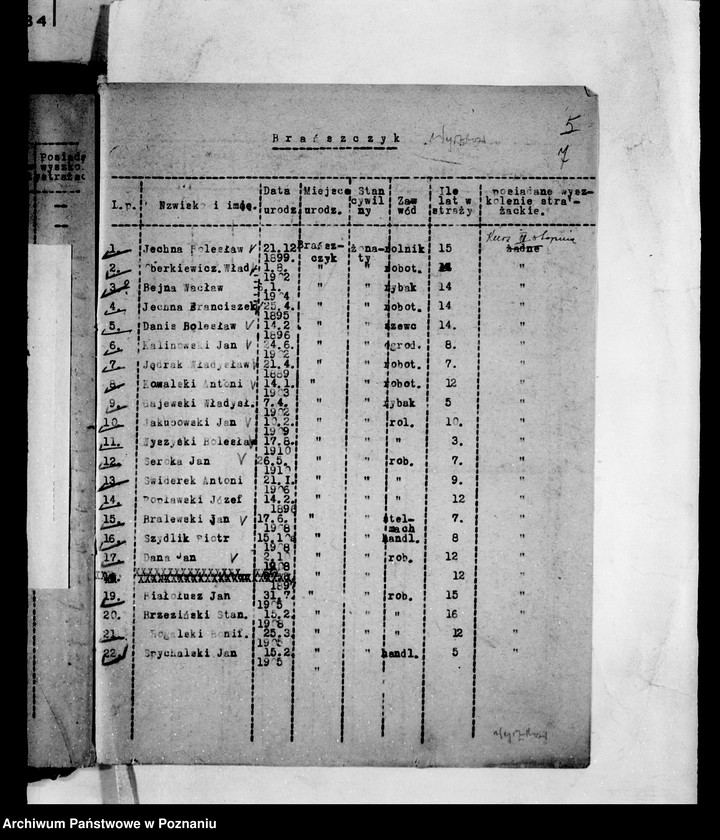 84
5
7
Brańszczyk
Posiada
wyszko.
strażac
L.p. Nzwisko i imię. Data urodz. Miejsce urodz. Stan cywilny Zawód Ile lat w straży posiadane wyszkolenie strażackie.
Kurs II stopnia
1. Jechna Bolesław V 21.12 1899. Brańszczyk żonaty rolnik 15 żadne
2. Oberkiewicz.Wład. 1.8. 1902 " " robot. "
3. Bejna Wacław 1. 1904 " " rybak 14 "
4. Jechna Franciszek 25.4. 1895 " " robot. 14 "
5. Danis Bolesław V 14.2 1896 " " szewc 14. "
6. Kalinowski Jan V 24.6. 1902 " " ogrod. 8. "
7. Jędrak Władysław 21.4. 1889 " " robot. 7. "
8. Kowalski Antoni V 14.1. 1903 " " robot. 12 "
9. Gajewski Władysł. 7.4. 1902 " " rybak 5 "
10. Jakubowski Jan V 10.2. 1909 " " rol. 10. "
11. Wyszyski Bolesław 17.8. 1910 " " " 3. "
12. Seroka Jan V 26.5. 1910 " " rob. 7. "
13. Swiderek Antoni 21.I. 1906 " " " 9. "
14. Popławski Józef 14.2. 1896 " " " 12 "
15. Bralewski Jan V 17.6. 1908 " " stelmach 7. "
16. Szydlik Piotr 15.10 1908 " " handl. 8 "
17. Dana Jan V 2.1 1908 " " rob. 12 "
1897 " " 12 "
19. Białołusz Jan 31.7. 1905 " " rob. 15 "
20. Brzeziński Stan. 15.2. 1908 " " " 16 "
21. Rogalski Bonif. 25.3. 1905 " " " 12 "
22. Spychalski Jan 15.2. 1905 " " handl. 5 "
"
Archiwum Państwowe w Poznaniu